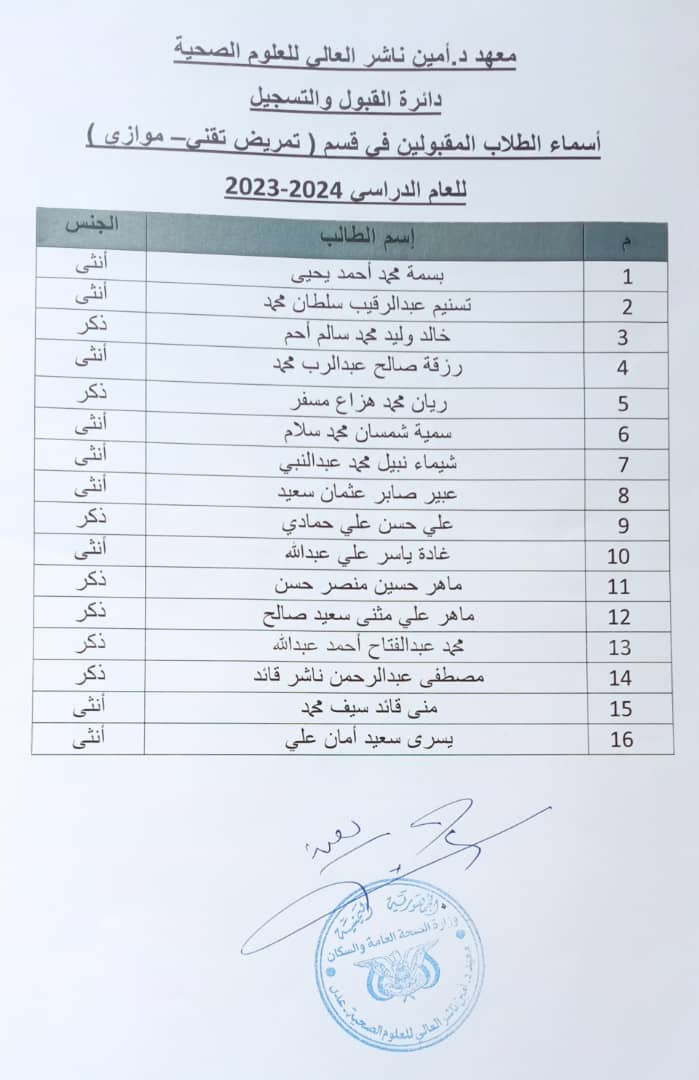 معهد د.أمين ناشر العالي للعلوم الصحية
دائرة القبول والتسجيل
أسماء الطلاب المقبولين في قسم ( تمريض تقني– موازى )
للعام الدراسي 2024-2023
م إسم الطالب الجنس
1 بسمة محمد أحمد يحيى أنثى
2 تسنيم عبدالرقيب سلطان محمد أنثى
3 خالد وليد محمد سالم أحم ذكر
4 رزقة صالح عبدالرب محمد أنثى
5 ريان محمد هزاع مسفر ذكر
6 سمية شمسان محمد سلام أنثى
7 شيماء نبيل محمد عبدالنبي أنثى
8 عبير صابر عثمان سعيد أنثى
9 علي حسن علي حمادي ذكر
10 غادة ياسر علي عبدالله أنثى
11 ماهر حسين منصر حسن ذكر
12 ماهر علي مثنى سعيد صالح ذكر
13 محمد عبدالفتاح أحمد عبدالله ذكر
14 مصطفى عبدالرحمن ناشر قائد ذكر
15 منى قائد سيف محمد أنثى
16 يسرى سعيد أمان علي أنثى
الجمهورية اليمنية
وزارة الصحة العامة والسكان
معهد د.أمين ناشر العالي للعلوم الصحية - عدن